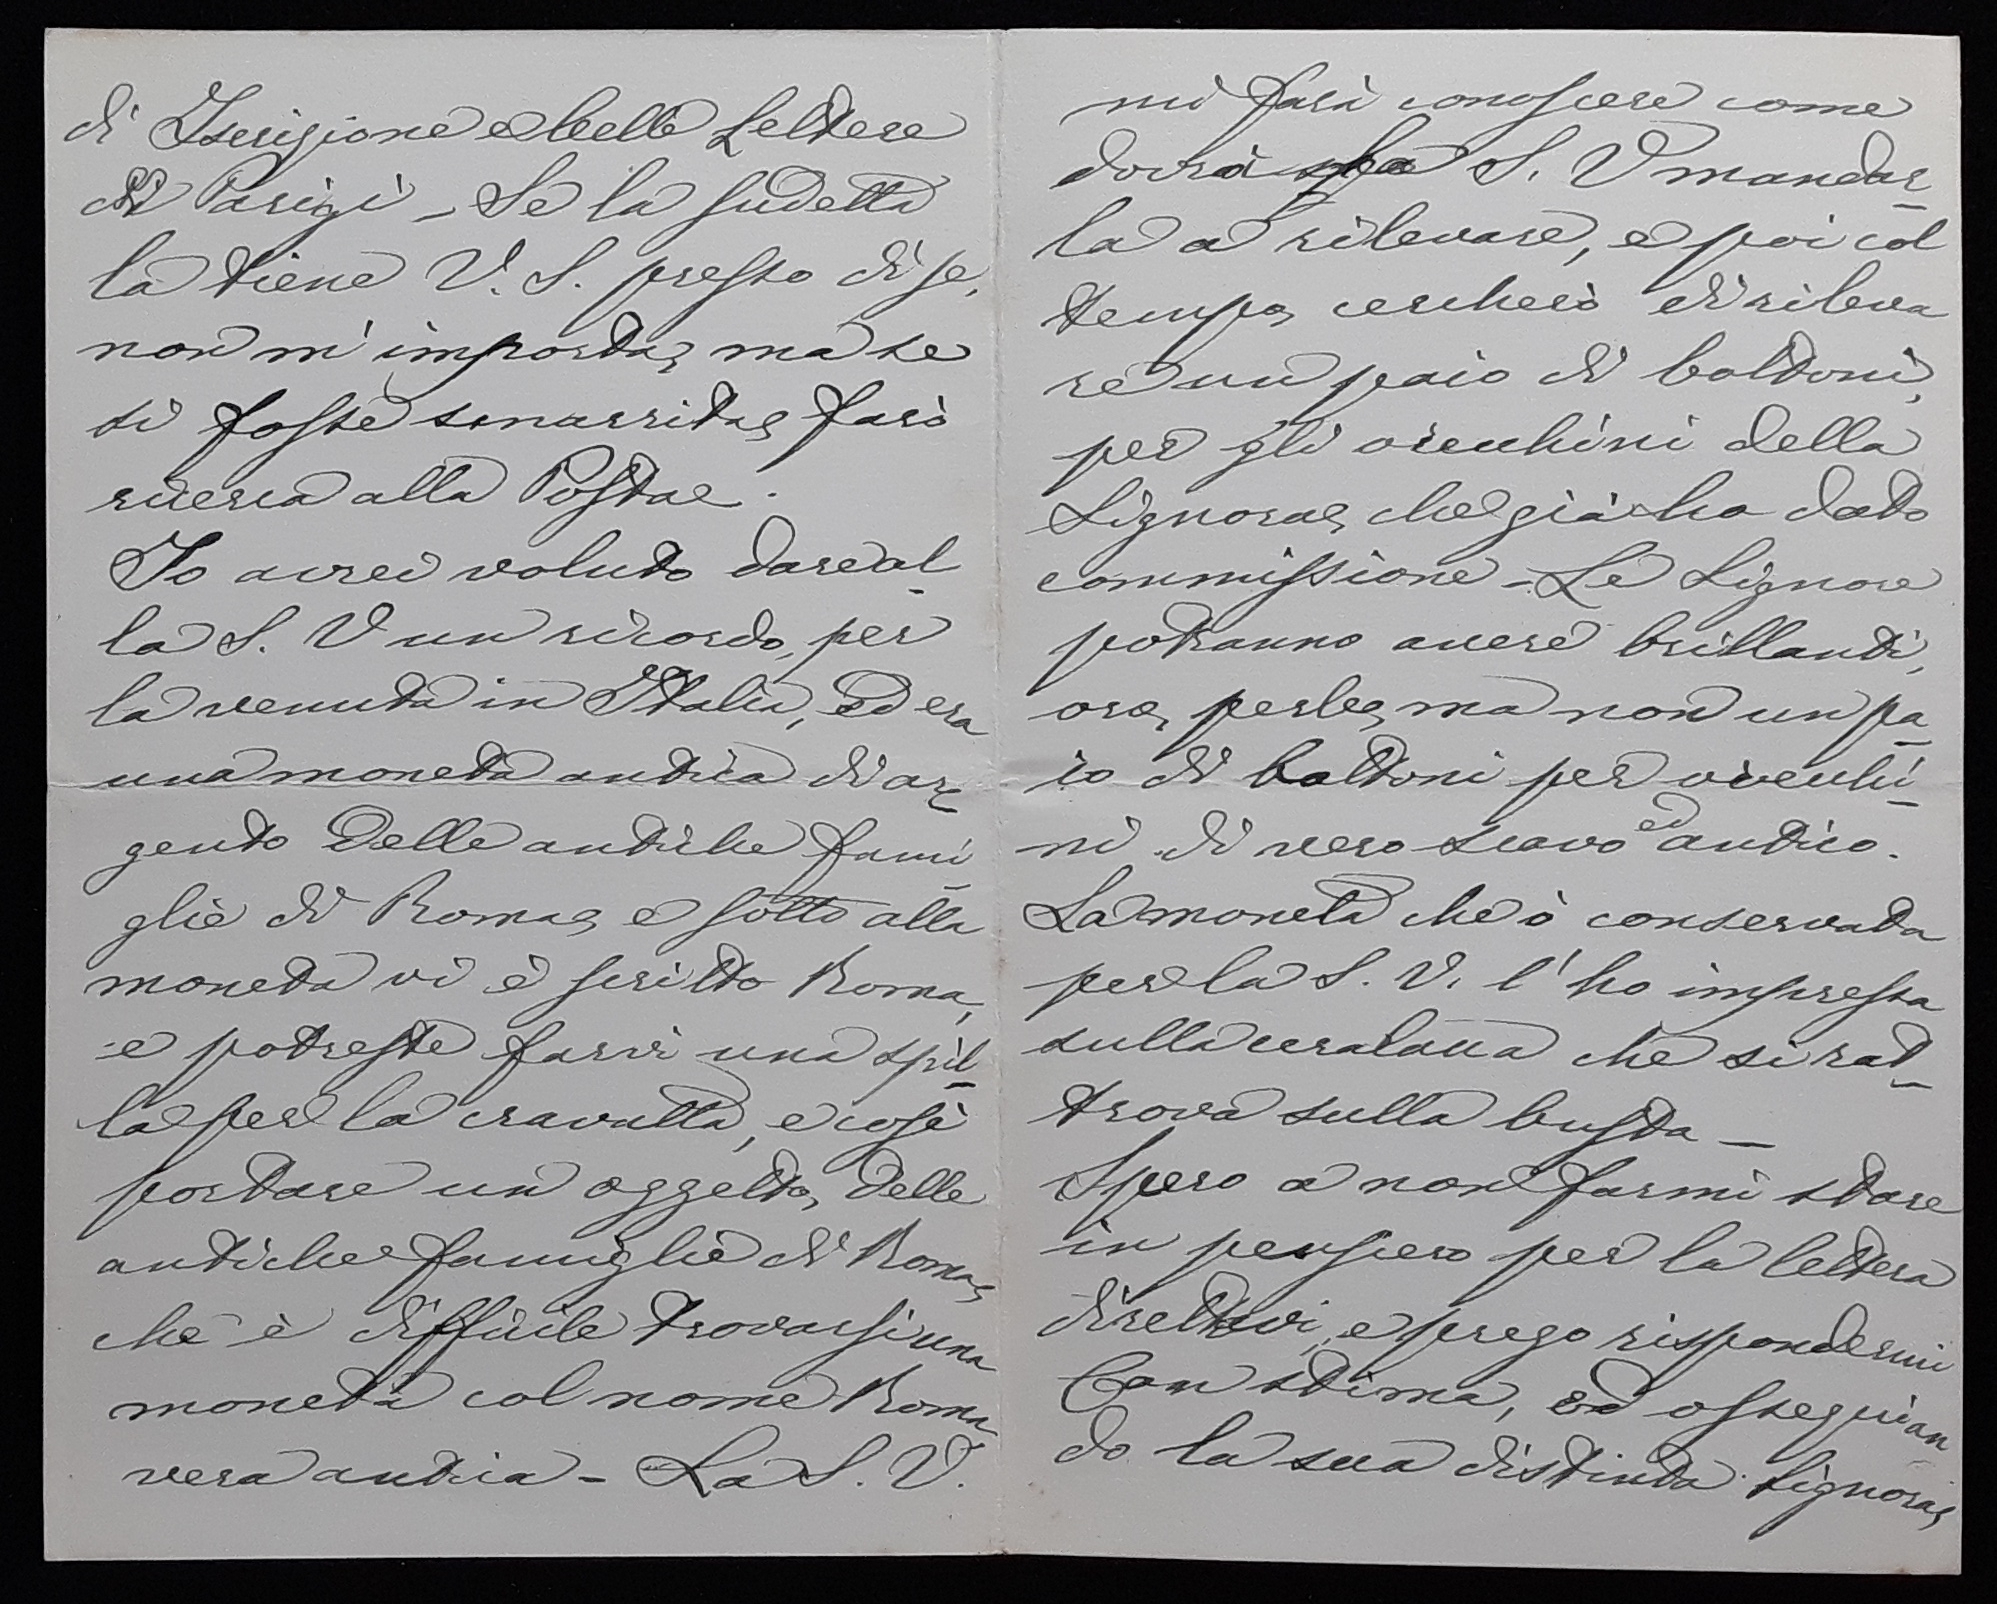 di Iscrizione e belle Lettere
di Parigi – Se la sudetta
la tiene V. S. presso di se,
non m'importa, ma se
si fosse smarrita, farò
ricerca alla Posta.
Io avrei voluto dare al-
la S. V un ricordo, per
la venuta in Italia, ed era
una moneta antica di ar-
gento delle antiche fami-
glie di Roma, e sotto alla
moneta vi è scritto Roma,
e potreste farvi una spil-
la per la cravatta, e così
portare un oggetto, delle
antiche famiglie di Roma,
che è difficile trovarsi una
moneta col nome Roma
vera antica – La S. V.
mi farà conoscere come
dovrò alla S. V mandar-
la a rilevare, e poi col
tempo, cercherò di rileva
re un paio di bottoni,
per gli orecchini della
Signora, che già ho dato
commissione – Le Signore
potranno avere brillanti,
oro, perle, ma non un pa-
io di bottoni per orecchi-
ni di vero scavo ed antico.
La moneta che ò conservata
per la S. V. l'ho impressa
sulla ceralacca che si rat-
trova sulla busta –
Spero a non farmi stare
in pensiero per la lettera
direttavi, e prego rispondermi
Con stima, ed ossequian
do la sua distinta Signora,